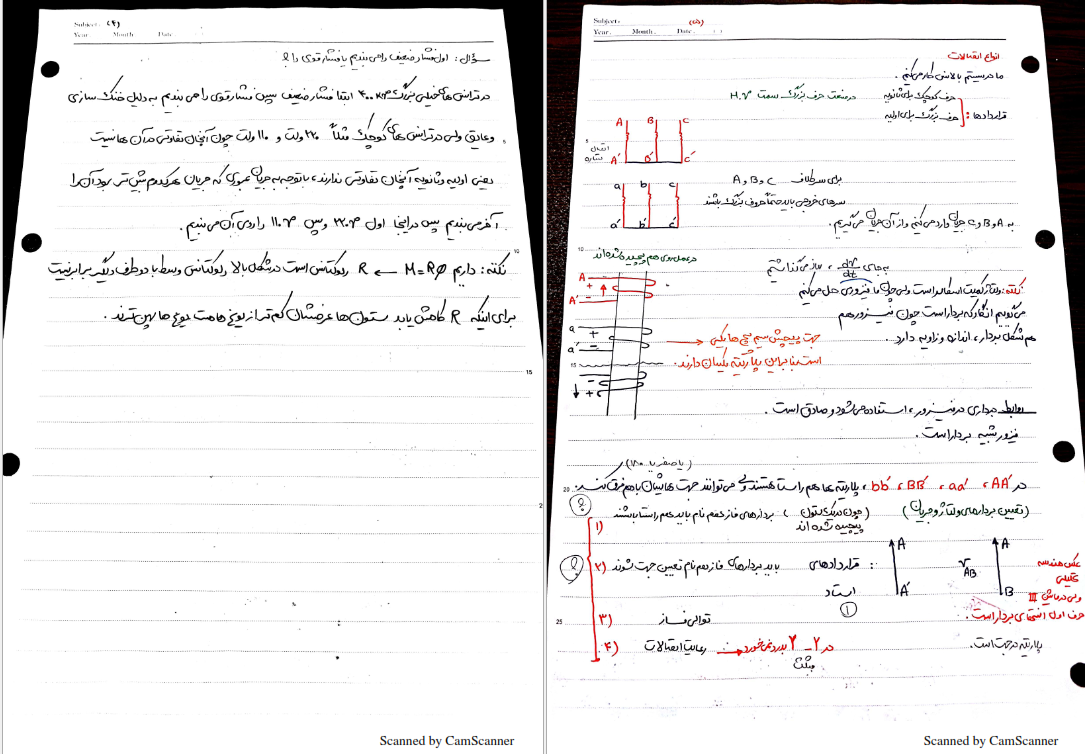 Subject: (۴)
Year. Month. Date. ( )
سؤال: اول فشار ضعیف را می بندیم یا فشار قوی را؟
در ترانس های خیلی بزرگ ابتدا فشار ضعیف سپس فشار قوی را می بندیم به دلیل خنک سازی
و عایق ولی در ترانس های کوچک مثلاً ۲۲۰ ولت و ۱۱۰ ولت چون آنچنان تفاوتی در آن ها نیست
یعنی اولیه و ثانویه آنچنان تفاوتی ندارند، با توجه به جریان عبوری که جریان هر کدام بیش تر بود آن را
آخر می بندیم پس در اینجا اول ۲۲۰ و سپس ۱۱۰ را روی آن می بندیم.
نکته: داریم M=Rφ ← R رلوکتانس است در شکل بالا رلوکتانس وسط با دو طرف دیگر برابر نیست
برای اینکه R کاهش یابد ستون ها عرضشان کم تر از یوغ هاست یوغ ها پهن ترند.
10
15
2
Scanned by CamScanner
Subject: (۵)
Year. Month. Date. ( )
انواع اتصالات
ما در سیستم بالانس کار می کنیم.
قراردادها: حرف کوچک برای ثانویه
حرف بزرگ برای اولیه
در صنعت حرف بزرگ سمت H.V
A B C
اتصال ستاره
A' B' C'
a b c
a' b' c'
برای سر کلاف A و B و C
سرهای خروجی باید حتماً حروف بزرگ باشند
به A و B و C جریان وارد می کنیم و از آن جریان می گیریم.
10
در عمل روی هم پیچیده شده اند
A +
A' −
a +
a' −
− +
به جای dφ/dt ، ساز می گذاشتیم
نکته: ولتاژ کمیت اسکالر است ولی چون ما فیزوری حل می کنیم
می گوییم انگار که بردار است چون فیزور هم
هم شکل بردار، اندازه و زاویه دارد.
جهت پیچش سیم پیچ ها یکی
است بنابراین پلاریته یکسان دارند.
15
روابط برداری در فیزور، استفاده می شود و صادق است.
فیزور شبیه بردار است.
(یا صفر یا ۱۸۰)
20
در AA' ، aa' ، BB' ، bb' ، پلاریته ها هم راستا هستند ولی می توانند جهت هایشان با هم فرق کند.
(تعیین بردارهای ولتاژ و جریان)
۱) بردارهای فاز هم نام باید هم راستا باشند (چون در یک ستون پیچیده شده اند)
۲) باید بردارهای فاز هم نام تعیین جهت شوند
قراردادهای استاد :
①
A
A'
V AB
A
B
عکس هندسه تحلیلی
ولی در ماشین III
حرف اول انتهای بردار است.
25
۳) توالی فاز
۴) رعایت اتصالات
در Y-Y بدرد نمی خورد
مثلث
پلاریته در جهت است.
Scanned by CamScanner